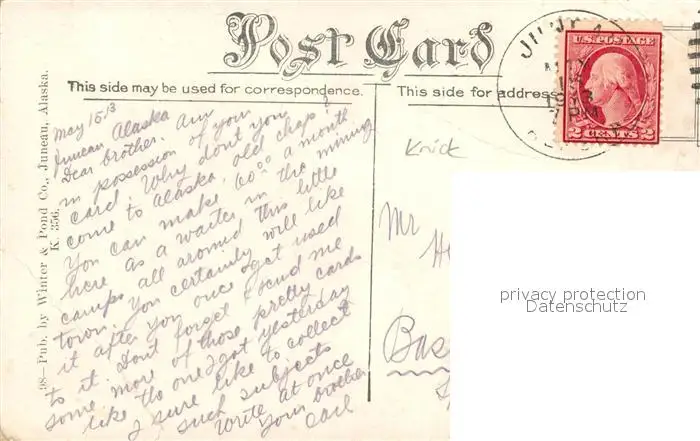 Post Card
This side may be used for correspondence.
This side for address
98—Pub. by Winter & Pond Co., Juneau, Alaska.
K. 356.
JUNEAU
U.S. POSTAGE
2 CENTS 2
May 15 13
Juneau Alaska
Dear brother. Am
in possession of your
card. Why dont you
come to Alaska, old chap?
You can make 60.00 a month
here as a waiter in the mining
camps all around this little
town. You certainly will like
it after you once get used
to it. Dont forget & send me
some more of those pretty cards
like the one I got yesterday
I sure like to collect
such subjects
Write at once
Your brother
Carl
Mr
Bas
privacy protection
Datenschutz